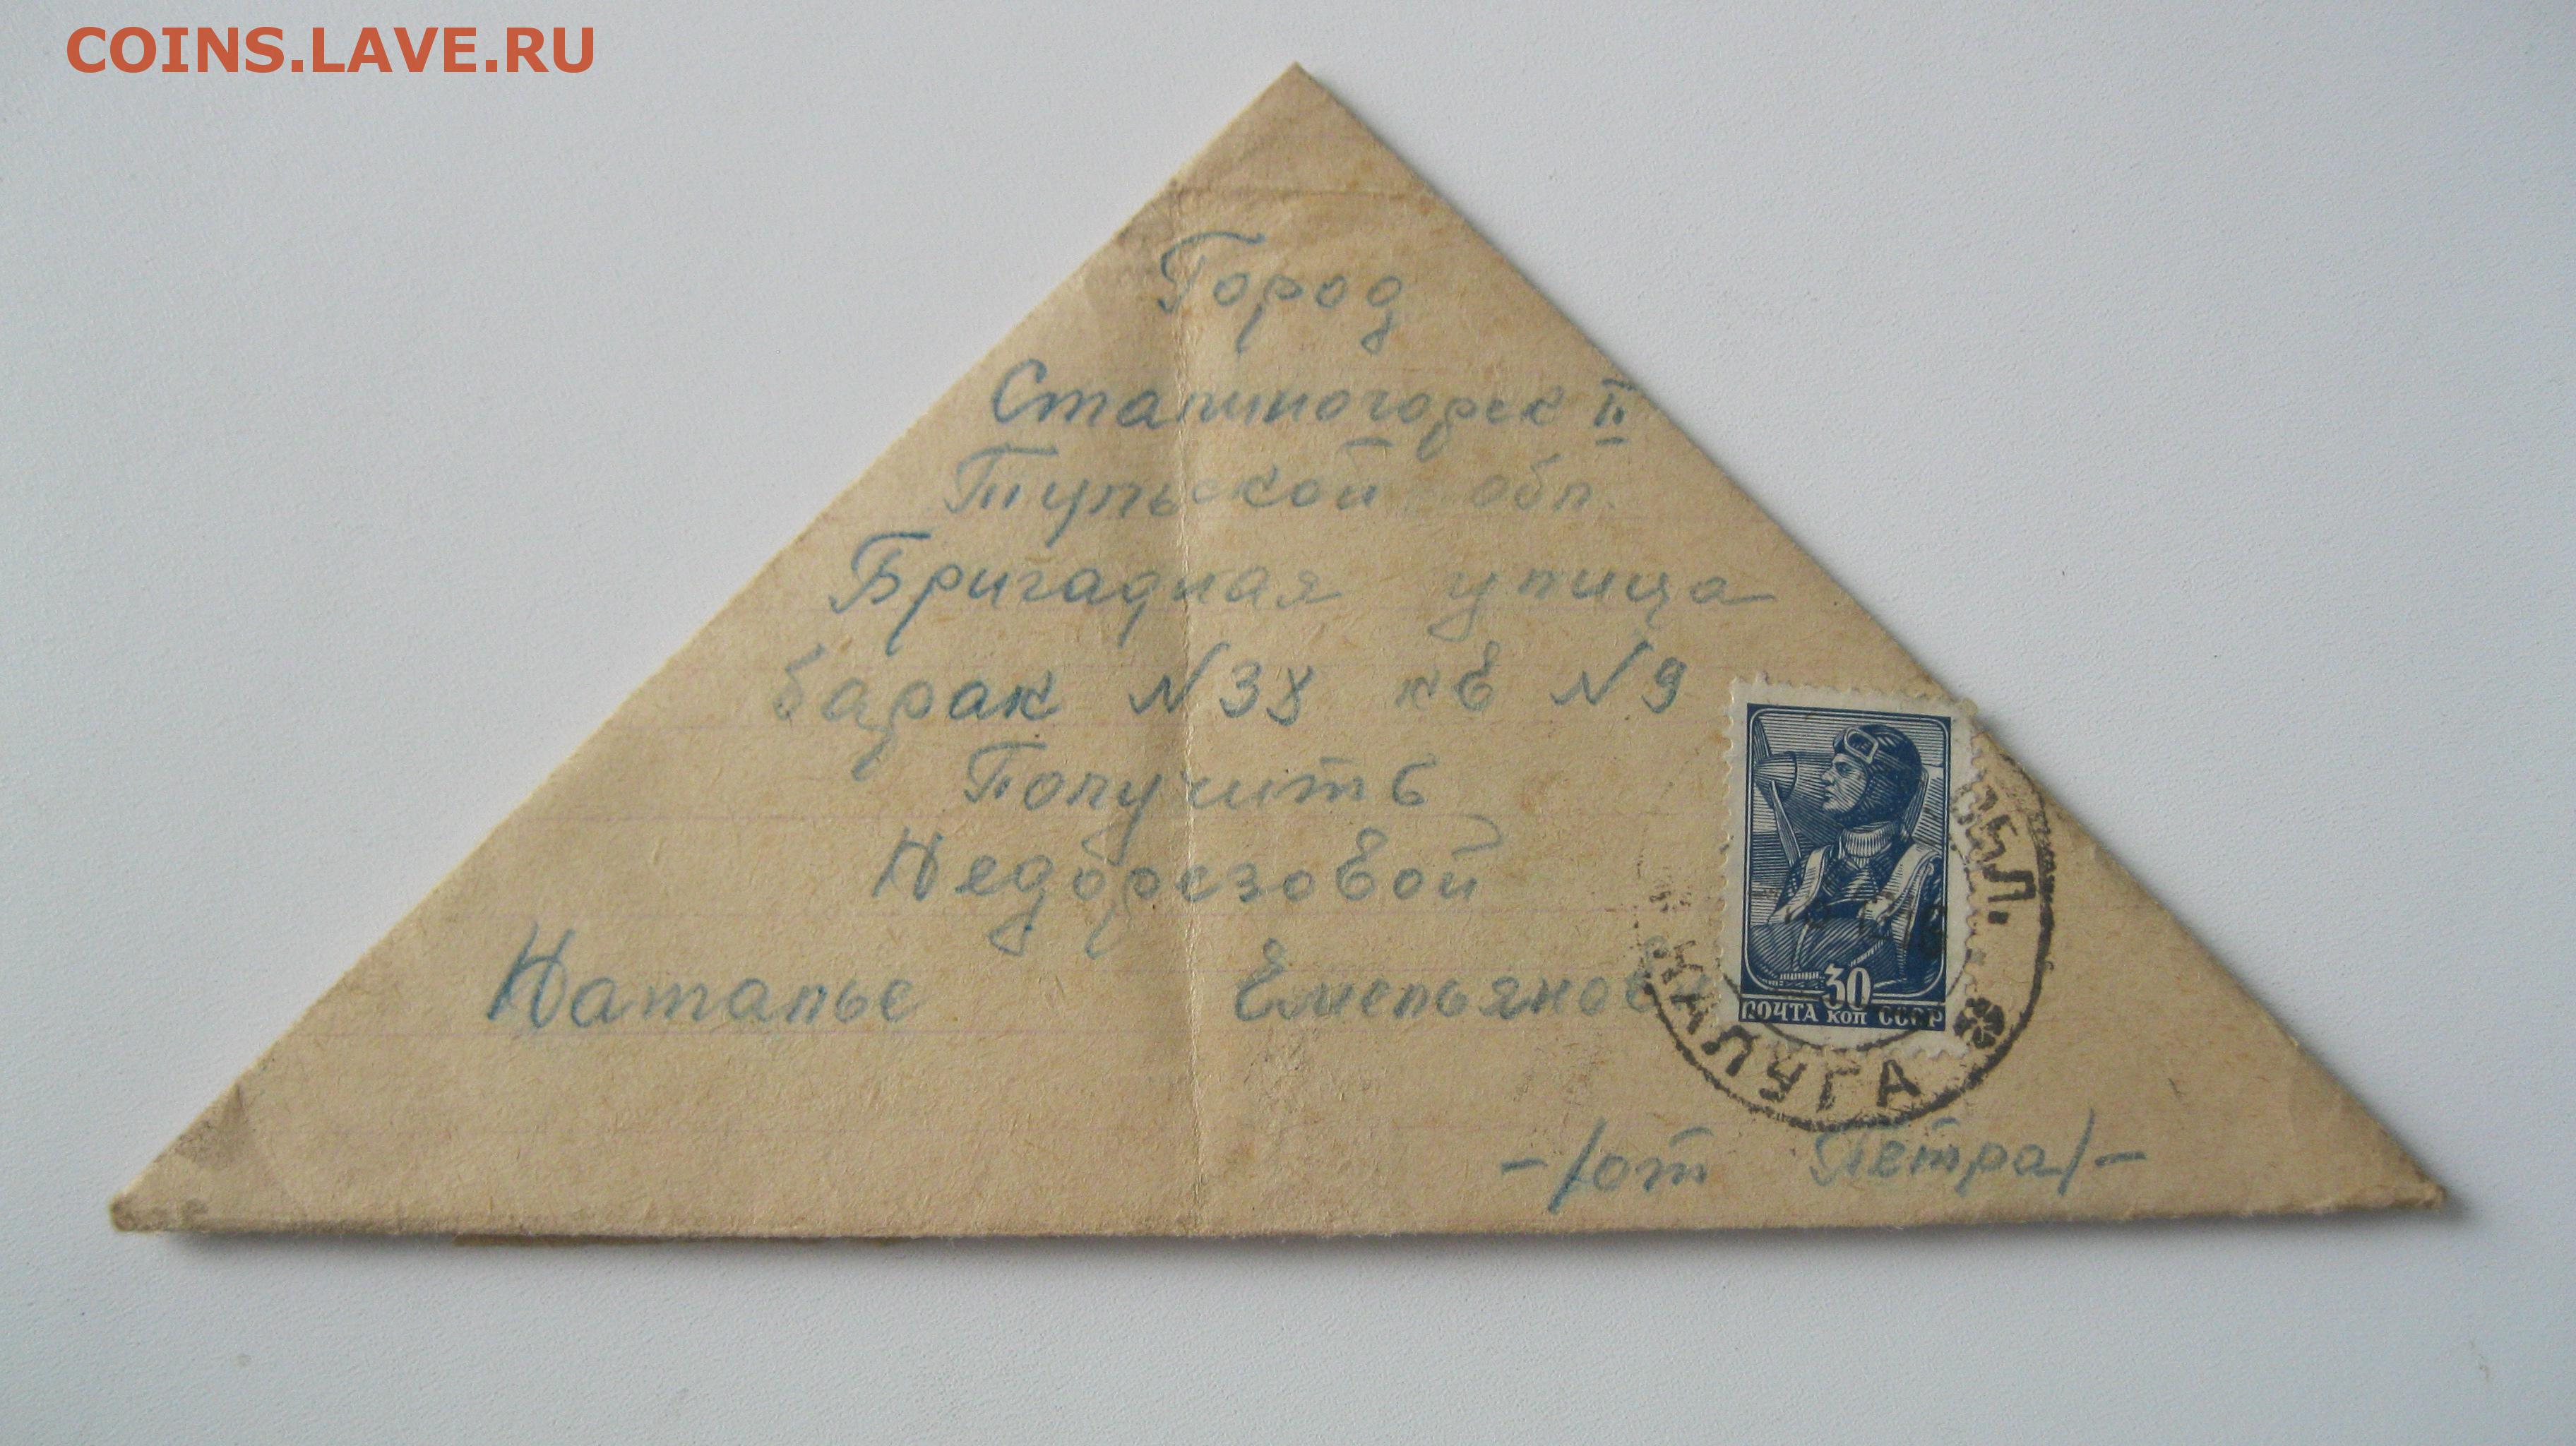 COINS.LAVE.RU
Город
Сталиногорск II
Тульской обл.
Бригадная улица
барак N 38 кв N 9
Получить
Недорезовой
Наталье Емельянов
30
ПОЧТА коп СССР
КАЛУГА
-/от Петра/-